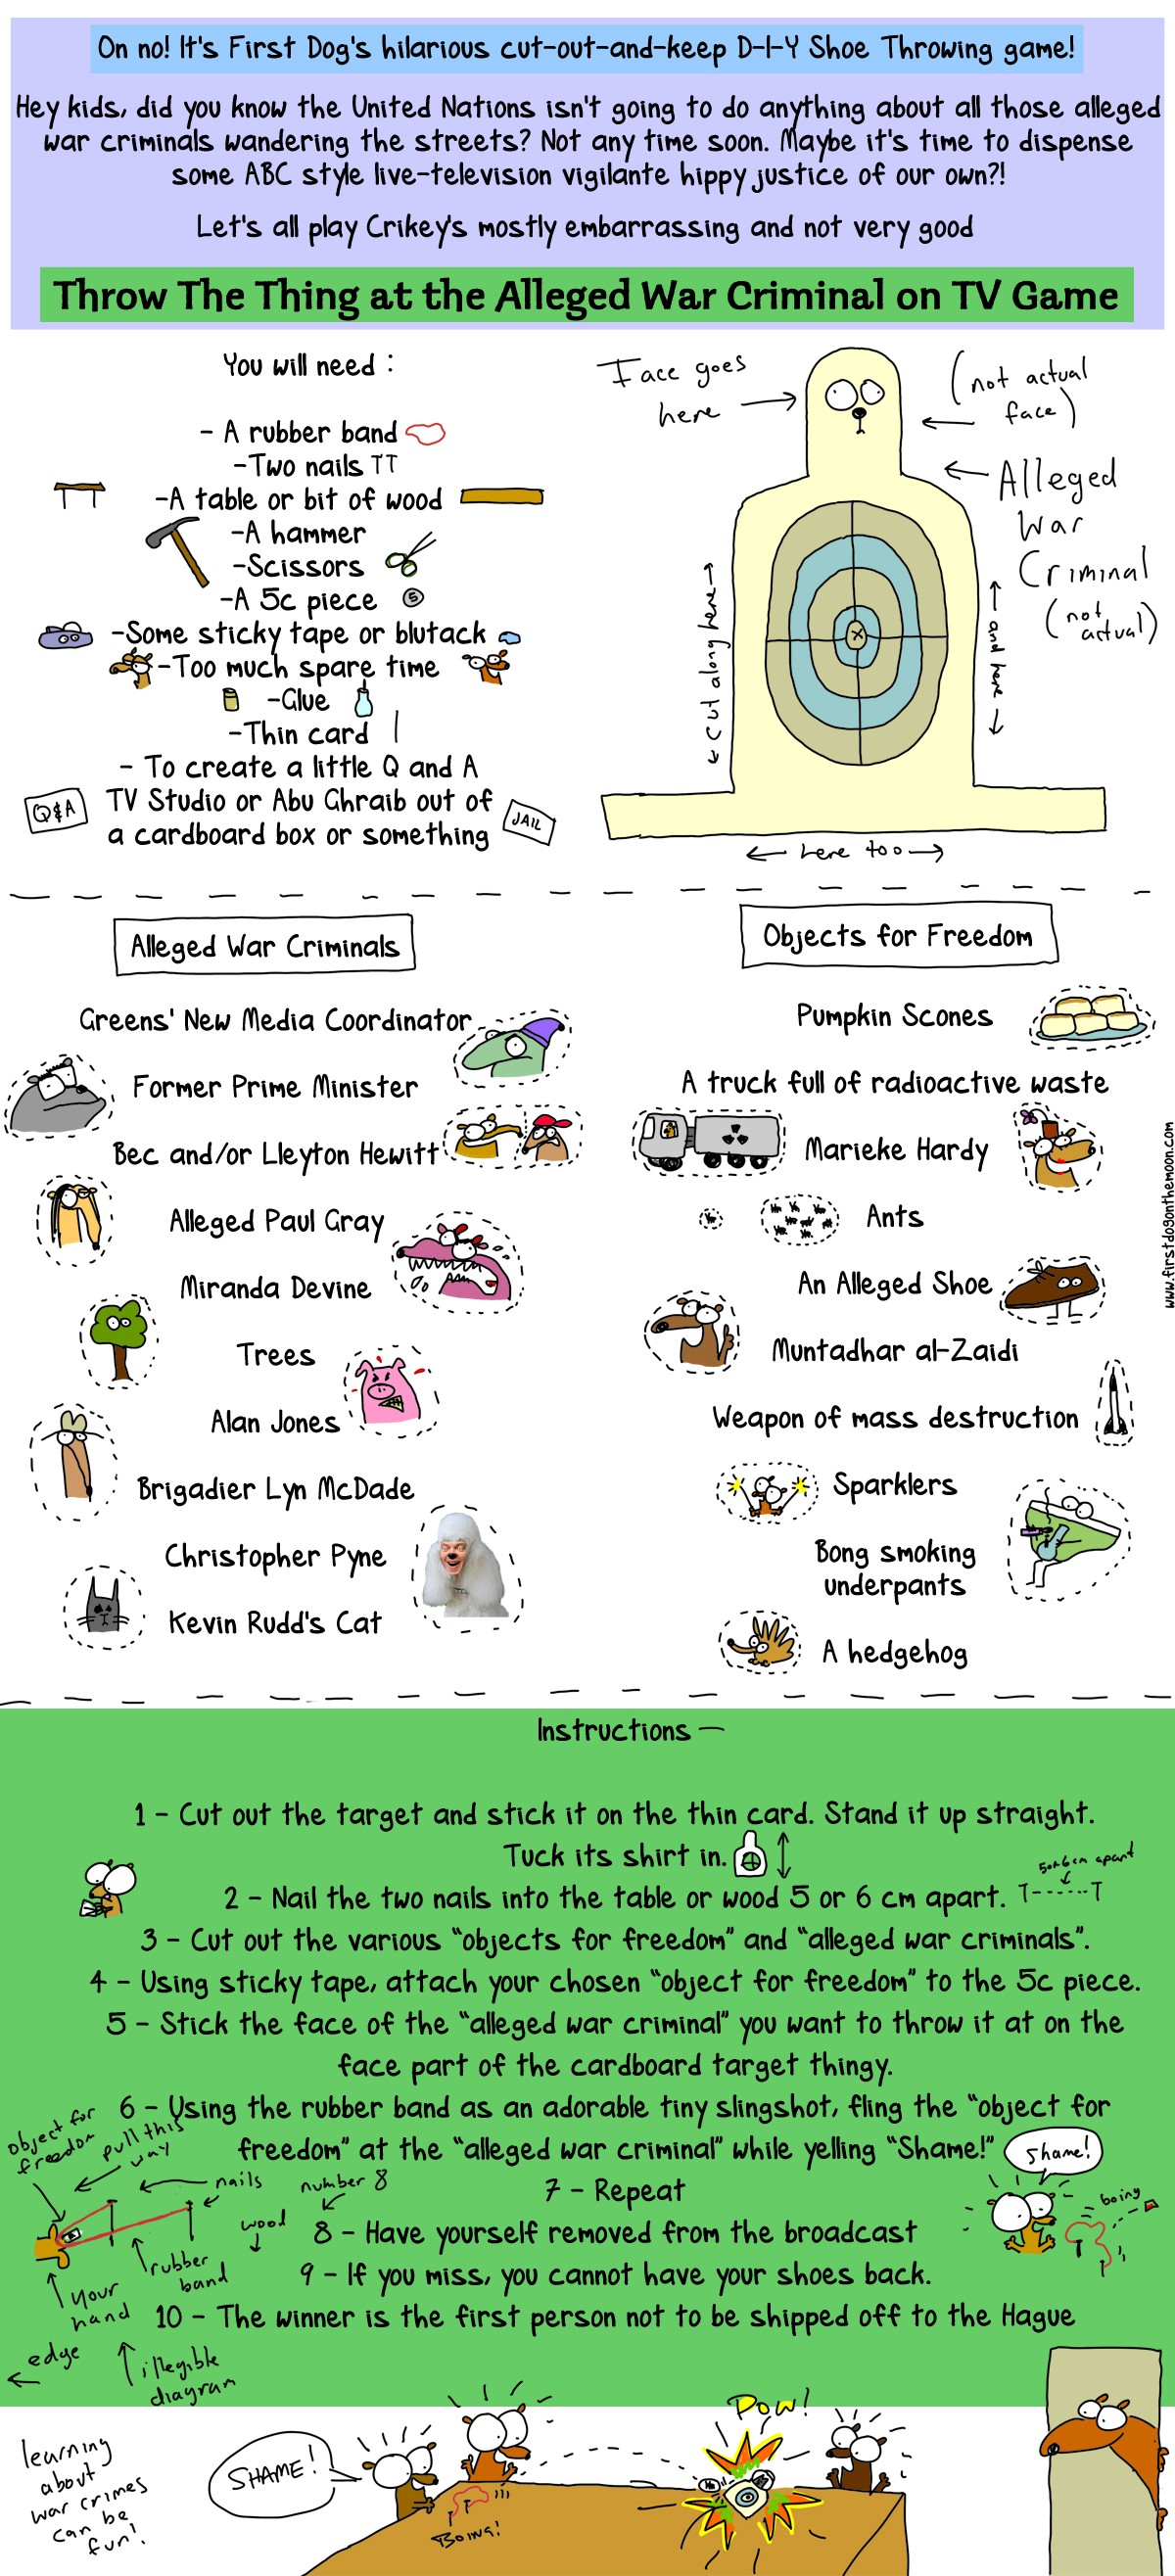 On no! It's First Dog's hilarious cut-out-and-keep D-I-Y Shoe Throwing game!
Hey kids, did you know the United Nations isn't going to do anything about all those alleged
war criminals wandering the streets? Not any time soon. Maybe it's time to dispense
some ABC style live-television vigilante hippy justice of our own?!
Let's all play Crikey's mostly embarrassing and not very good
Throw The Thing at the Alleged War Criminal on TV Game
You will need :
- A rubber band
-Two nails
-A table or bit of wood
-A hammer
-Scissors
-A 5c piece
5
-Some sticky tape or blutack
-Too much spare time
-Glue
-Thin card
- To create a little Q and A
TV Studio or Abu Ghraib out of
a cardboard box or something
Q&A
JAIL
Face goes
here
(not actual
face)
Alleged
War
Criminal
(not
actual)
x
cut along here
and here
here too
Alleged War Criminals
Greens' New Media Coordinator
Former Prime Minister
Bec and/or Lleyton Hewitt
Alleged Paul Gray
Miranda Devine
Trees
Alan Jones
Brigadier Lyn McDade
Christopher Pyne
Kevin Rudd's Cat
Objects for Freedom
Pumpkin Scones
A truck full of radioactive waste
Marieke Hardy
Ants
An Alleged Shoe
Muntadhar al-Zaidi
Weapon of mass destruction
Sparklers
Bong smoking
underpants
A hedgehog
www.firstdogonthemoon.com
Instructions —
1 - Cut out the target and stick it on the thin card. Stand it up straight.
Tuck its shirt in.
5or6cm apart
2 - Nail the two nails into the table or wood 5 or 6 cm apart.
3 - Cut out the various "objects for freedom" and "alleged war criminals".
4 - Using sticky tape, attach your chosen "object for freedom" to the 5c piece.
5 - Stick the face of the "alleged war criminal" you want to throw it at on the
face part of the cardboard target thingy.
6 - Using the rubber band as an adorable tiny slingshot, fling the "object for
freedom" at the "alleged war criminal" while yelling "Shame!"
7 - Repeat
8 - Have yourself removed from the broadcast
9 - If you miss, you cannot have your shoes back.
10 - The winner is the first person not to be shipped off to the Hague
object for
freedom
pull this
way
nails
number 8
wood
rubber
band
your
hand
edge
illegible
diagram
Shame!
boing
learning
about
war crimes
can be
fun!
SHAME!
Boing!
Pow!